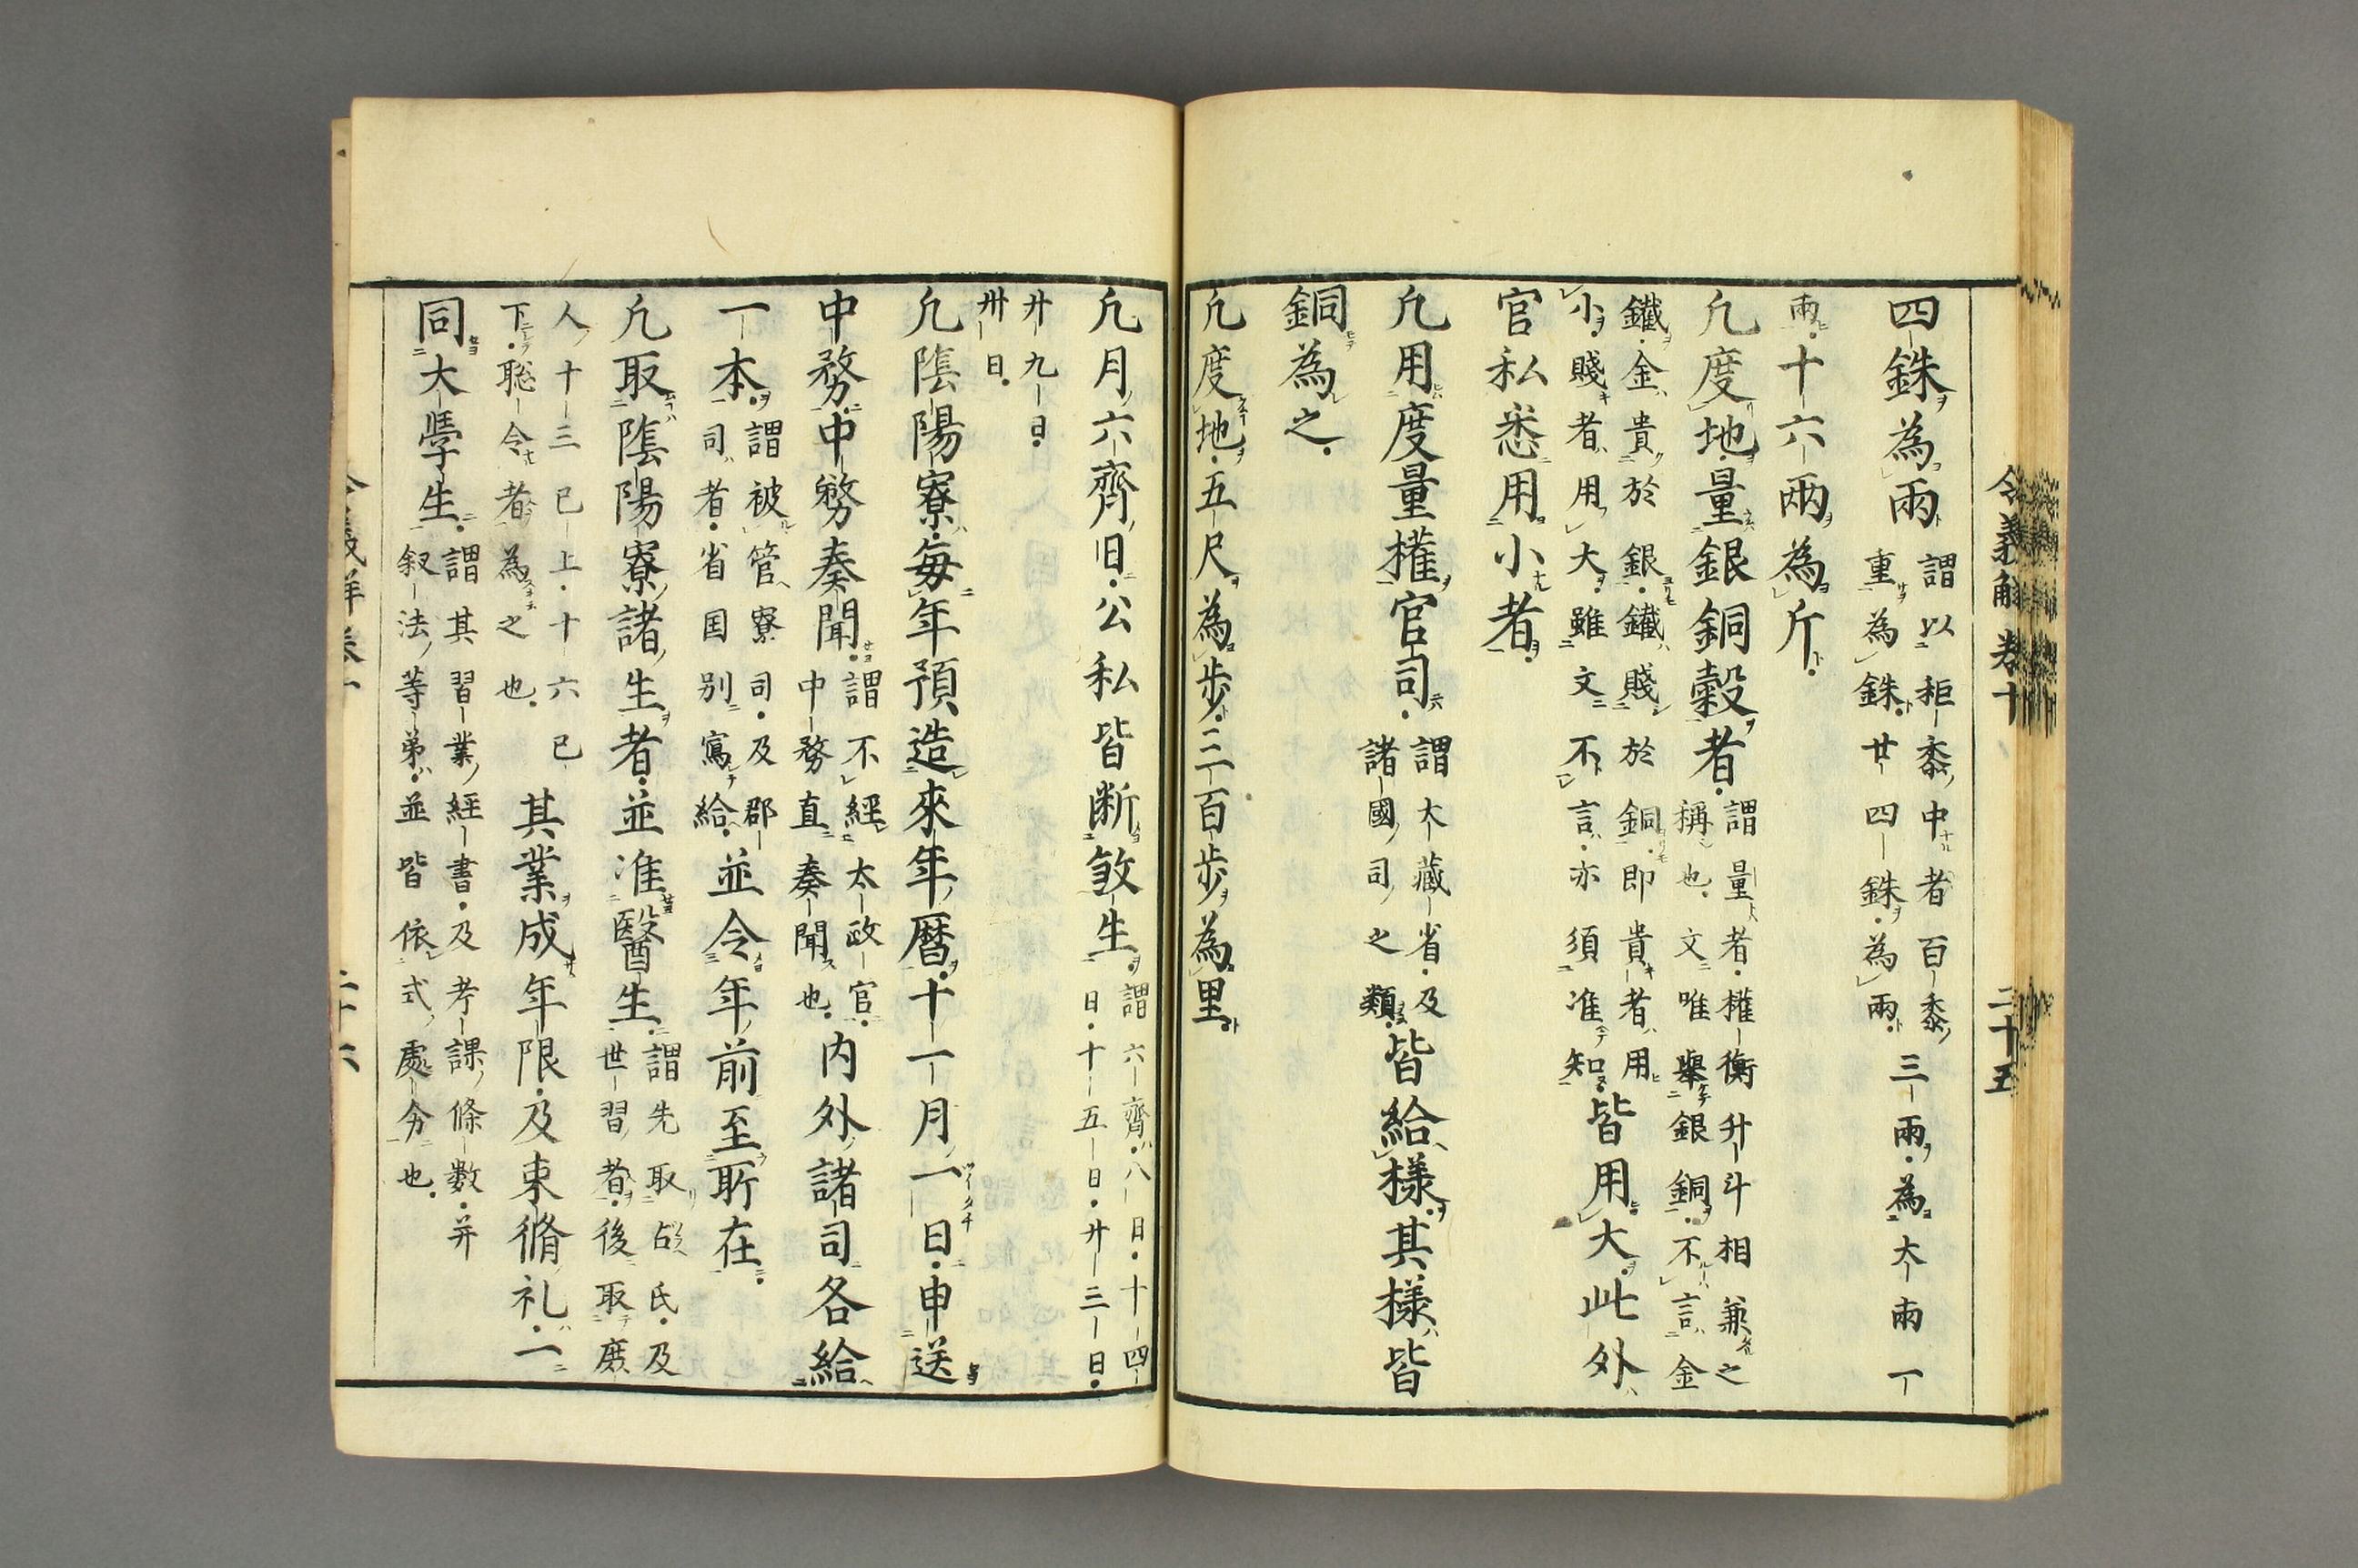 令義解 卷十 二十五
四銖為兩
謂以秬黍中者百黍
重為銖廿四銖為兩
三兩為大兩一
兩十六兩為斤
凢度地量銀銅穀者
謂量者權衡升斗相兼之
稱也文唯舉銀銅不言金
鐵金貴於銀鐵賤於銅即貴者用
小賤者用大雖文不言亦須准知
皆用大此外
官私悉用小者
凢用度量權官司
謂大藏省及
諸國司之類
皆給樣其樣皆
銅為之
凢度地五尺為步三百步為里
凢月六齊旧公私皆断煞生
謂六齊八日十四
日十五日廿三日
廿九日
卅日
凢陰陽寮毎年預造來年曆十一月一日申送
中務中務奏聞
謂不經太政官
中務直奏聞也
内外諸司各給
一本
謂被管寮司及郡
司者省国別寫給
並令年前至所在
凢取陰陽寮諸生者並准醫生
謂先取占氏及
世習者後取庶
人十三已上十六已
下聡令者為之也
其業成年限及束脩礼一
同大學生
謂其習業經書及考課條數并
叙法等苐並皆依式處分也